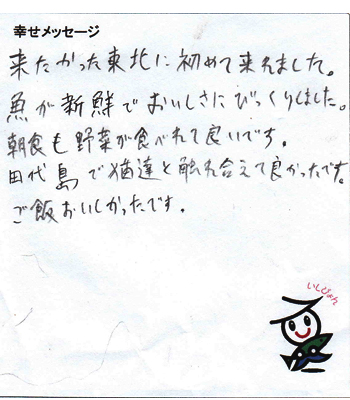 幸せメッセージ
来たかった東北に初めて来れました。
魚が新鮮でおいしさにびっくりしました。
朝食も野菜が食べれて良いです。
田代島で猫達と触れ合えて良かったです。
ご飯おいしかったです。
いしぴょん